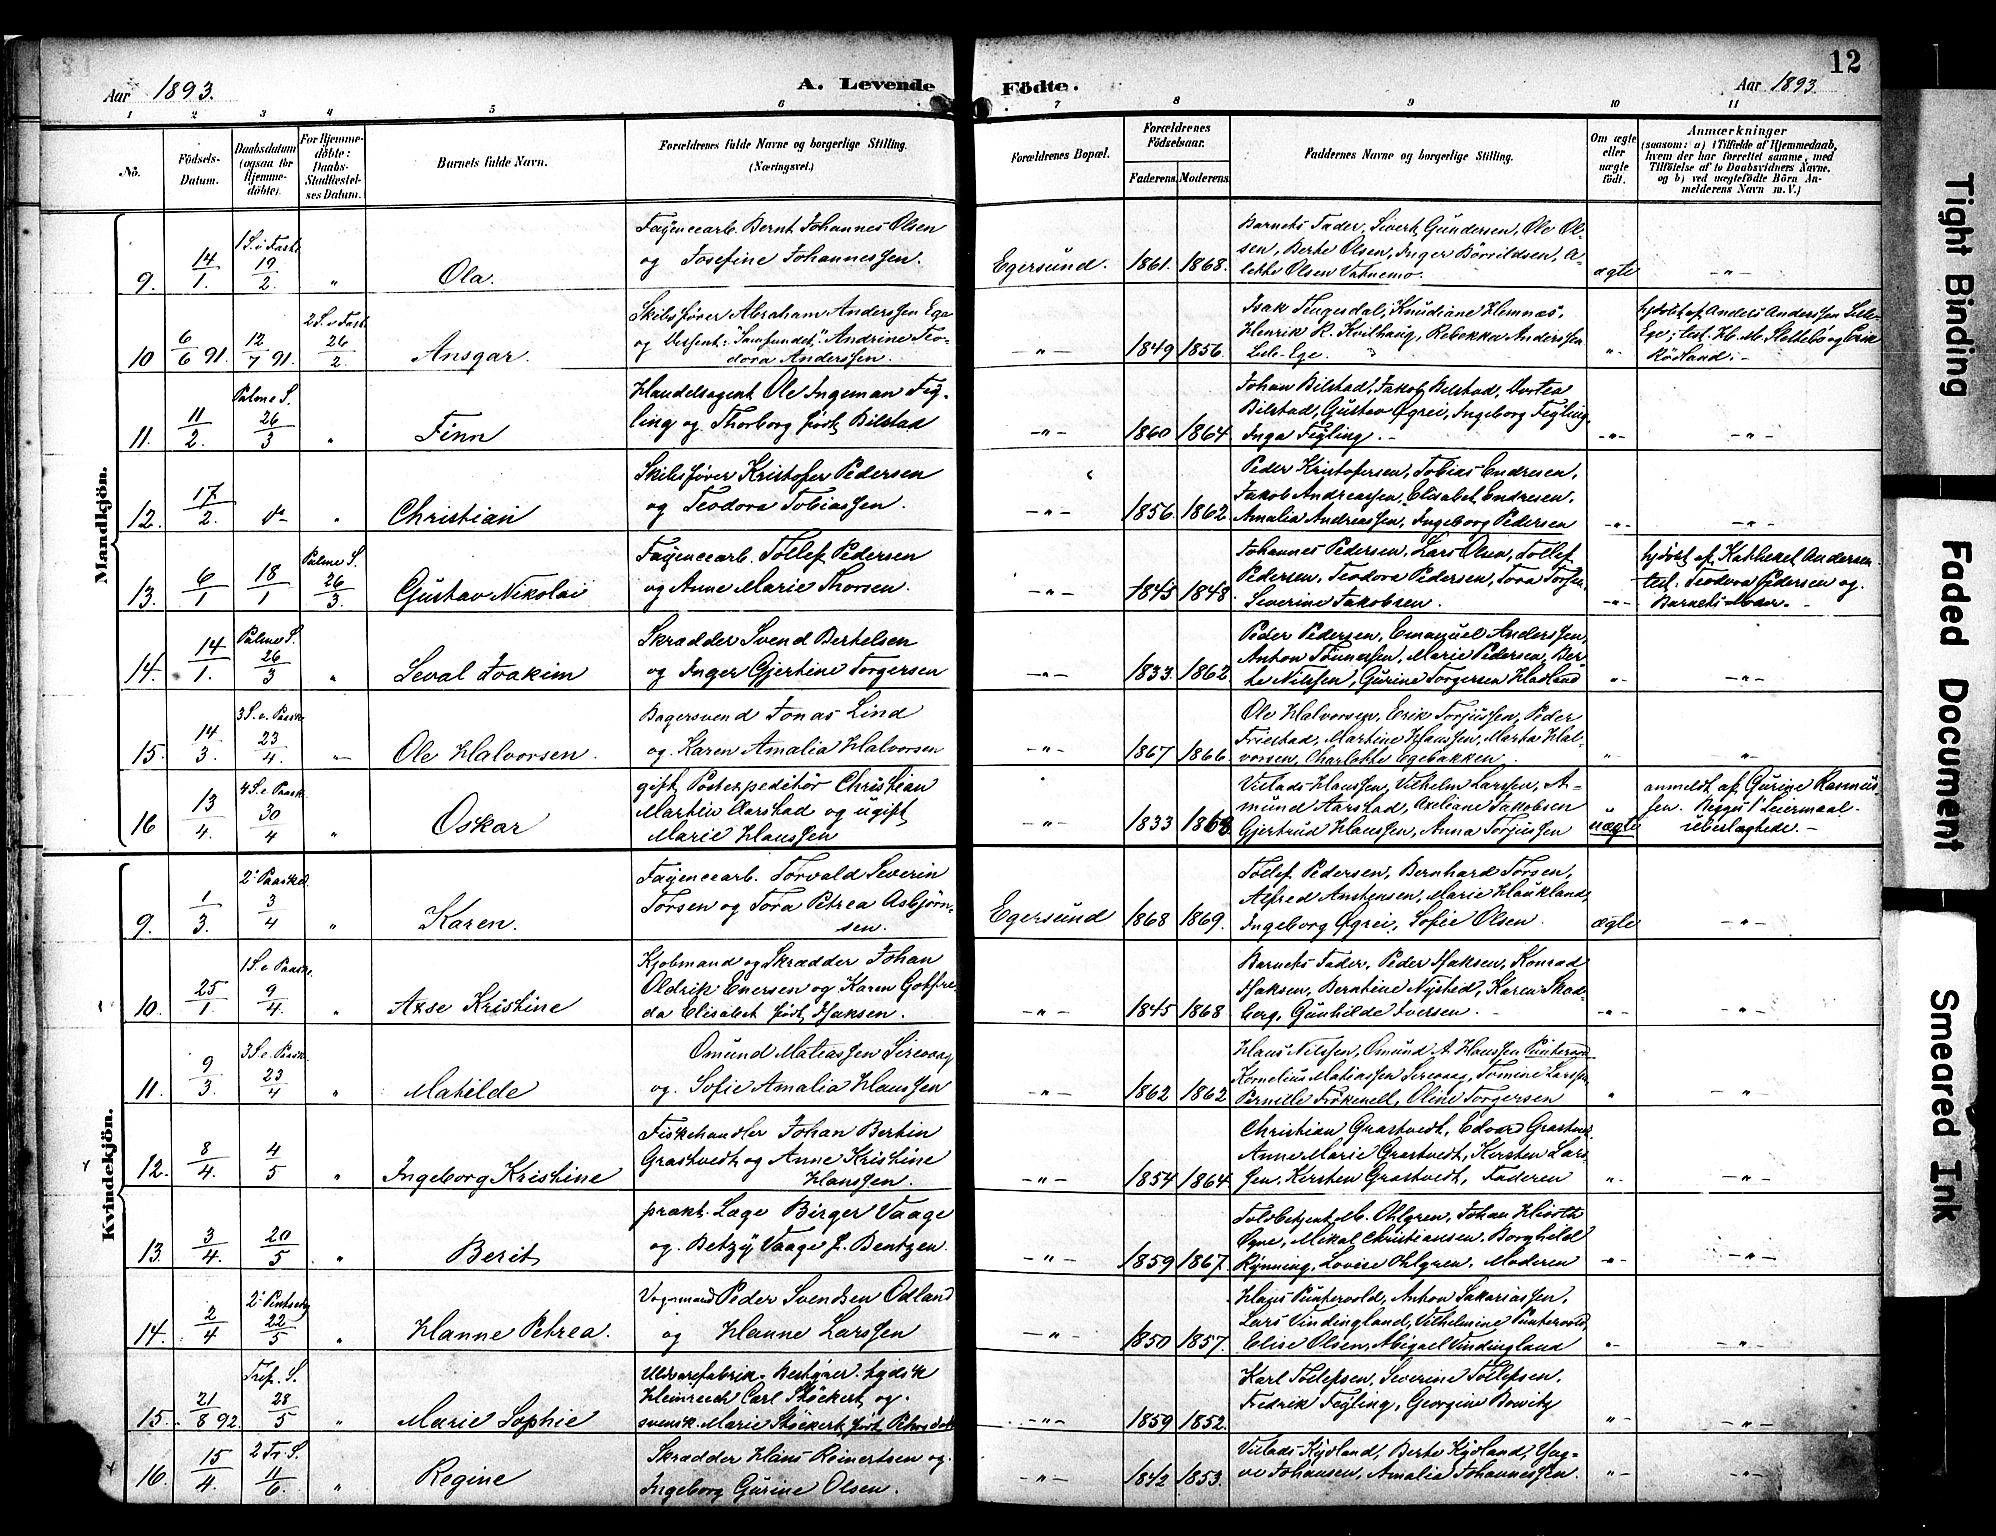 12
Aar 1893.
A. Levende Födte.
Aar 1893
1 2 3 4 5 6 7 8 9 10 11
No.
Födsels-Datum.
Daabsdatum (ogsaa for Hjemme-döbte).
For Hjemme-döbte: Daabs-Stadfæstel-ses Datum.
Barnets fulde Navn.
Forældrenes fulde Navne og borgerlige Stilling. (Næringsvei.)
Forældrenes Bopæl.
Forældrenes Födselsaar.
Faderens. Moderens.
Faddernes Navne og borgerlige Stilling.
Om ægte eller uægte födt.
Anmærkninger
(saasom: a) i Tilfælde af Hjemmedaab,
hvem der har forrettet samme, med
Tilföielse af to Daabsvidners Navne.
og b) ved uægtefödte Börn An-
melderens Navn m. V.)
Mandkjön.
9. 14/1. 1 S. i Faste 19/2. " Ola.
Fayencearb. Bernt Johannes Olsen
og Josefine Johannessen.
Egersund. 1861. 1868.
Barnets Fader, Sivert Gundersen, Ole Ol-
sen, Berte Olsen, Inger Börrildsen, A-
lette Olsen Vatnemo.
ægte -"-
10 6/6 91. 12/7 91. 2 S. i Faste 26/2. Ansgar.
Skibsfører Abraham Anderssen Ege
og Dissent: "Samfundet". Andrine Teo-
dora Anderssen.
-"- 1849 1856.
Isak Tengesdal, Knudiane Hemnes,
Henrik K. Kvilhaug, Rebekka Anderssen
Lille-Ege.
"- hjdøbt af Anders Anderssen Lille-
Ege; test. H. M. Sletlebø og Erik
Rødland.-
11. 11/2. Palme S. 26/3 " Finn
Handelsagent Ole Ingeman Feg-
ling og Thorborg født Bilstad
-"- 1860 1864
Johan Bilstad, Jakob Bilstad, Dortea
Bilstad, Gustav Øgrei, Ingeborg Fegling,
Inga Fegling.-
-"- -"-
12. 17/2. d- " Christian
Skibsfører Kristofer Pedersen
og Teodora Tobiassen.
-"- 1856. 1862.
Peder Kristofersen, Tobias Endresen,
Jakob Andreassen, Elisabet Endresen,
Amalia Andreassen, Ingeborg Pedersen
-"- -"-
13. 6/1 18/1 Palme S. 26/3. Gustav Nikolai
Fayencearb. Tollef Pedersen
og Anne Marie Thorsen.
-"- 1845 1848.
Johannes Pedersen, Lars Olsen, Tollef
Pedersen, Teodora Pedersen, Tora Torsen,
Severine Jakobsen.
-"- hjdøbt af Andersen.
test. Teodora Pedersen og
Barnets Moer.-
14. 14/1. Palme S. 26/3 " Seval Joakim
Skrædder Svend Bertelsen
og Inger Gjertine Torgersen
-"- 1833. 1862
Peder Pedersen, Emanuel Anderssen,
Anton Tönnessen, Marie Pedersen, Ber-
te Nilssen, Gurine Torgersen Hadland
"- -"-
15. 14/3. 3 S. e. Paaske 23/4. -"- Ole Halvorsen.
Bagersvend Jonas Lind
og Karen Amalia Halvorsen
-"- 1867 1866
Ole Halvorsen, Erik Torjussen, Peder
Friestad, Martine Hanssen, Marta Hal-
vorsen, Charlotte Egebakken.
" "-
16 13/4. 4 S. e. Paask. 30/4 " Oskar
gift Postexpeditør Christian
Martin Aarstad og ugift
Marie Hanssen
-"- 1833 1868
Villads Hanssen, Vilhelm Larsen, A-
mund Aarstad, Axeliane Jakobsen
Gjertrud Hanssen, Anna Torjussen
" uægte
anmeldt af Gurine Rasmus-
sen. Begges 1ste Leiermaal.
uberygtede.-
Kvindekjön.
9. 1/3. 2. Paasked. 3/4 " Karen.
Fayencearb. Torvald Severin
Torsen og Tora Petrea Asbjørn-
sen.
Egersund 1868 1869.
Tollef Pedersen, Bernhard Torsen,
Alfred Anstensen, Marie Haukland,
Ingeborg Øgrei, Sofie Olsen.
ægte -"-
10. 25/1. 1 S. e Paaske. 9/4. " Aase Kristine
Kjøbmand og Skrædder Johan
Oldrik Enersen og Karen Gotfre-
da Elisabet født Isaksen.
-"- 1845 1868
Barnets Fader, Peder Isaksen, Konrad
Isaksen, Berntine Nysted, Karen Skad-
berg, Gunhilde Iversen.-
-"- -"-
11. 9/3. 3 S. e Paaske 23/4 " Matilde
Omund Matiassen Sirevaag
og Sofie Amalia Hanssen
-"- 1862 1862
Hans Nilssen, Omund A. Hanssen
Kornelius Matiassen Sirevaag, Tomine Larsen,
Pernille Frøkenell, Oline Torgersen
" -"-
12. 8/4. 4/5 " Ingeborg Kristine
Fiskehandler Johan Bertin
Grastvedt og Anne Kristine
Hanssen.
-"- 1854 1864
Christian Grastvedt, Edvard Grastve
Anne Marie Grastvedt, Kirsten Lars-
sen, Kirsten Grastvedt, Faderen
"- -"-
13. 3/4. 20/5 " Berit
prakt. Læge Birger Vaage
og. Betzy Vaage f. Bentzen.
-"- 1859 1867.
Toldbetjent M. Ohlgren, Johan
Øgne, Mikal Christiansen, Borghild
Rynning, Lovise Ohlgren, Moderen
"- -"-
14. 2/4 2. Pintsedag 22/5 " Hanne Petrea.
Vognmand Peder Svendsen Odland
og Hanne Larssen
-"- 1850 1857.
Hans Puntervold, Anton Sakariassen,
Lars Vindingland, Vilhelmine Puntervold,
Elise Olsen, Abigael Vindingland
"- -"-
15. 21/8 92. Tref. S. 28/5 " Marie Sophie
Uldvarefabrik. Bestyrer. tydsk
Heinreich Carl Støckert og.
svensk. Marie Støckert, født
-"- 1859 1852.
Karl Tollefsen, Severine Tollefsen,
Fredrik Fegling, Georgine Bowitz
"- -"-
16. 15/4. 2 Tr. S. 11/6. " Regine
Skrædder Hans Reinertsen og.
Ingeborg Gurine Olsen.
-"- 1842 1853.
Villads Kydland, Berte Kydland, Yng-
ve Johansen, Amalia Johannessen.
"- -"-
Tight Binding
Faded Document
Smeared Ink